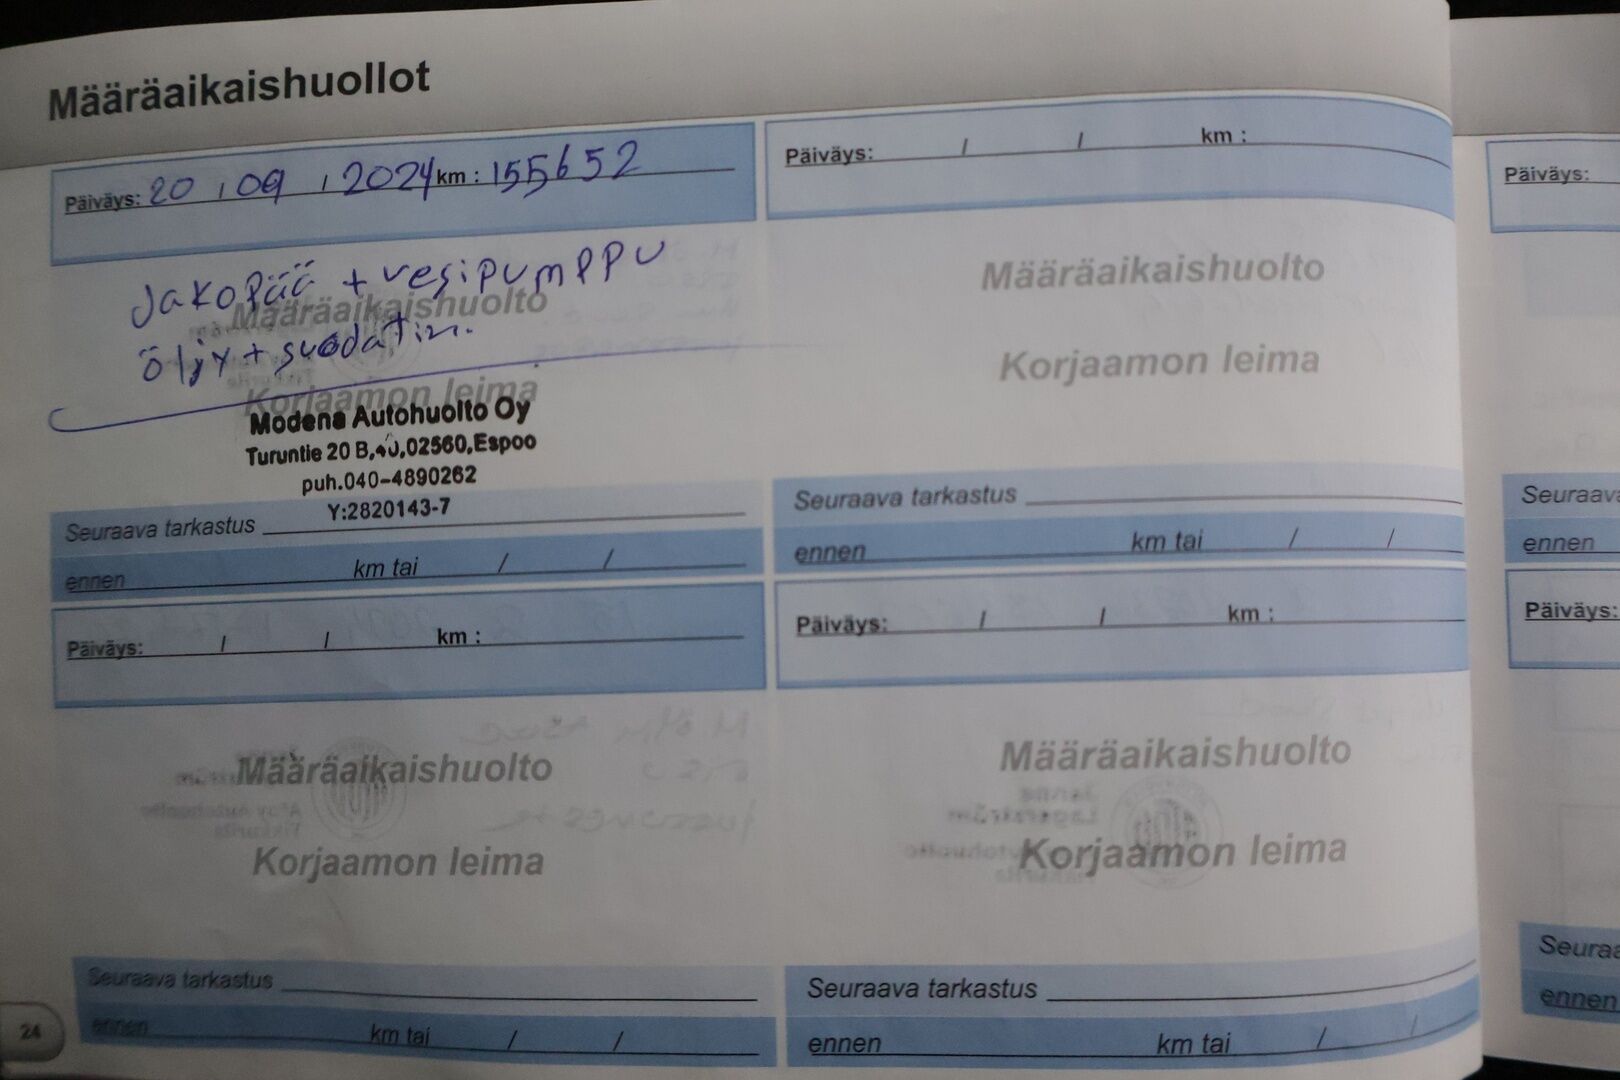 Määräaikaishuollot
Päiväys: 20 / 09 / 2024 km : 155652
Jakopää + vesipumppu
Määräaikaishuolto
öljy + suodatin.
Korjaamon leima
Modena Autohuolto Oy
Turuntie 20 B, 02560, Espoo
puh.040-4890262
Y:2820143-7
Seuraava tarkastus
ennen km tai / /
Päiväys: / / km :
Määräaikaishuolto
Korjaamon leima
Seuraava tarkastus
ennen km tai / /
Päiväys: / / km :
Määräaikaishuolto
Korjaamon leima
Seuraava tarkastus
ennen km tai / /
Päiväys: / / km :
Määräaikaishuolto
Korjaamon leima
Seuraava tarkastus
ennen km tai / /
24
Päiväys:
Seuraav
ennen
Päiväys:
Seuraa
ennen